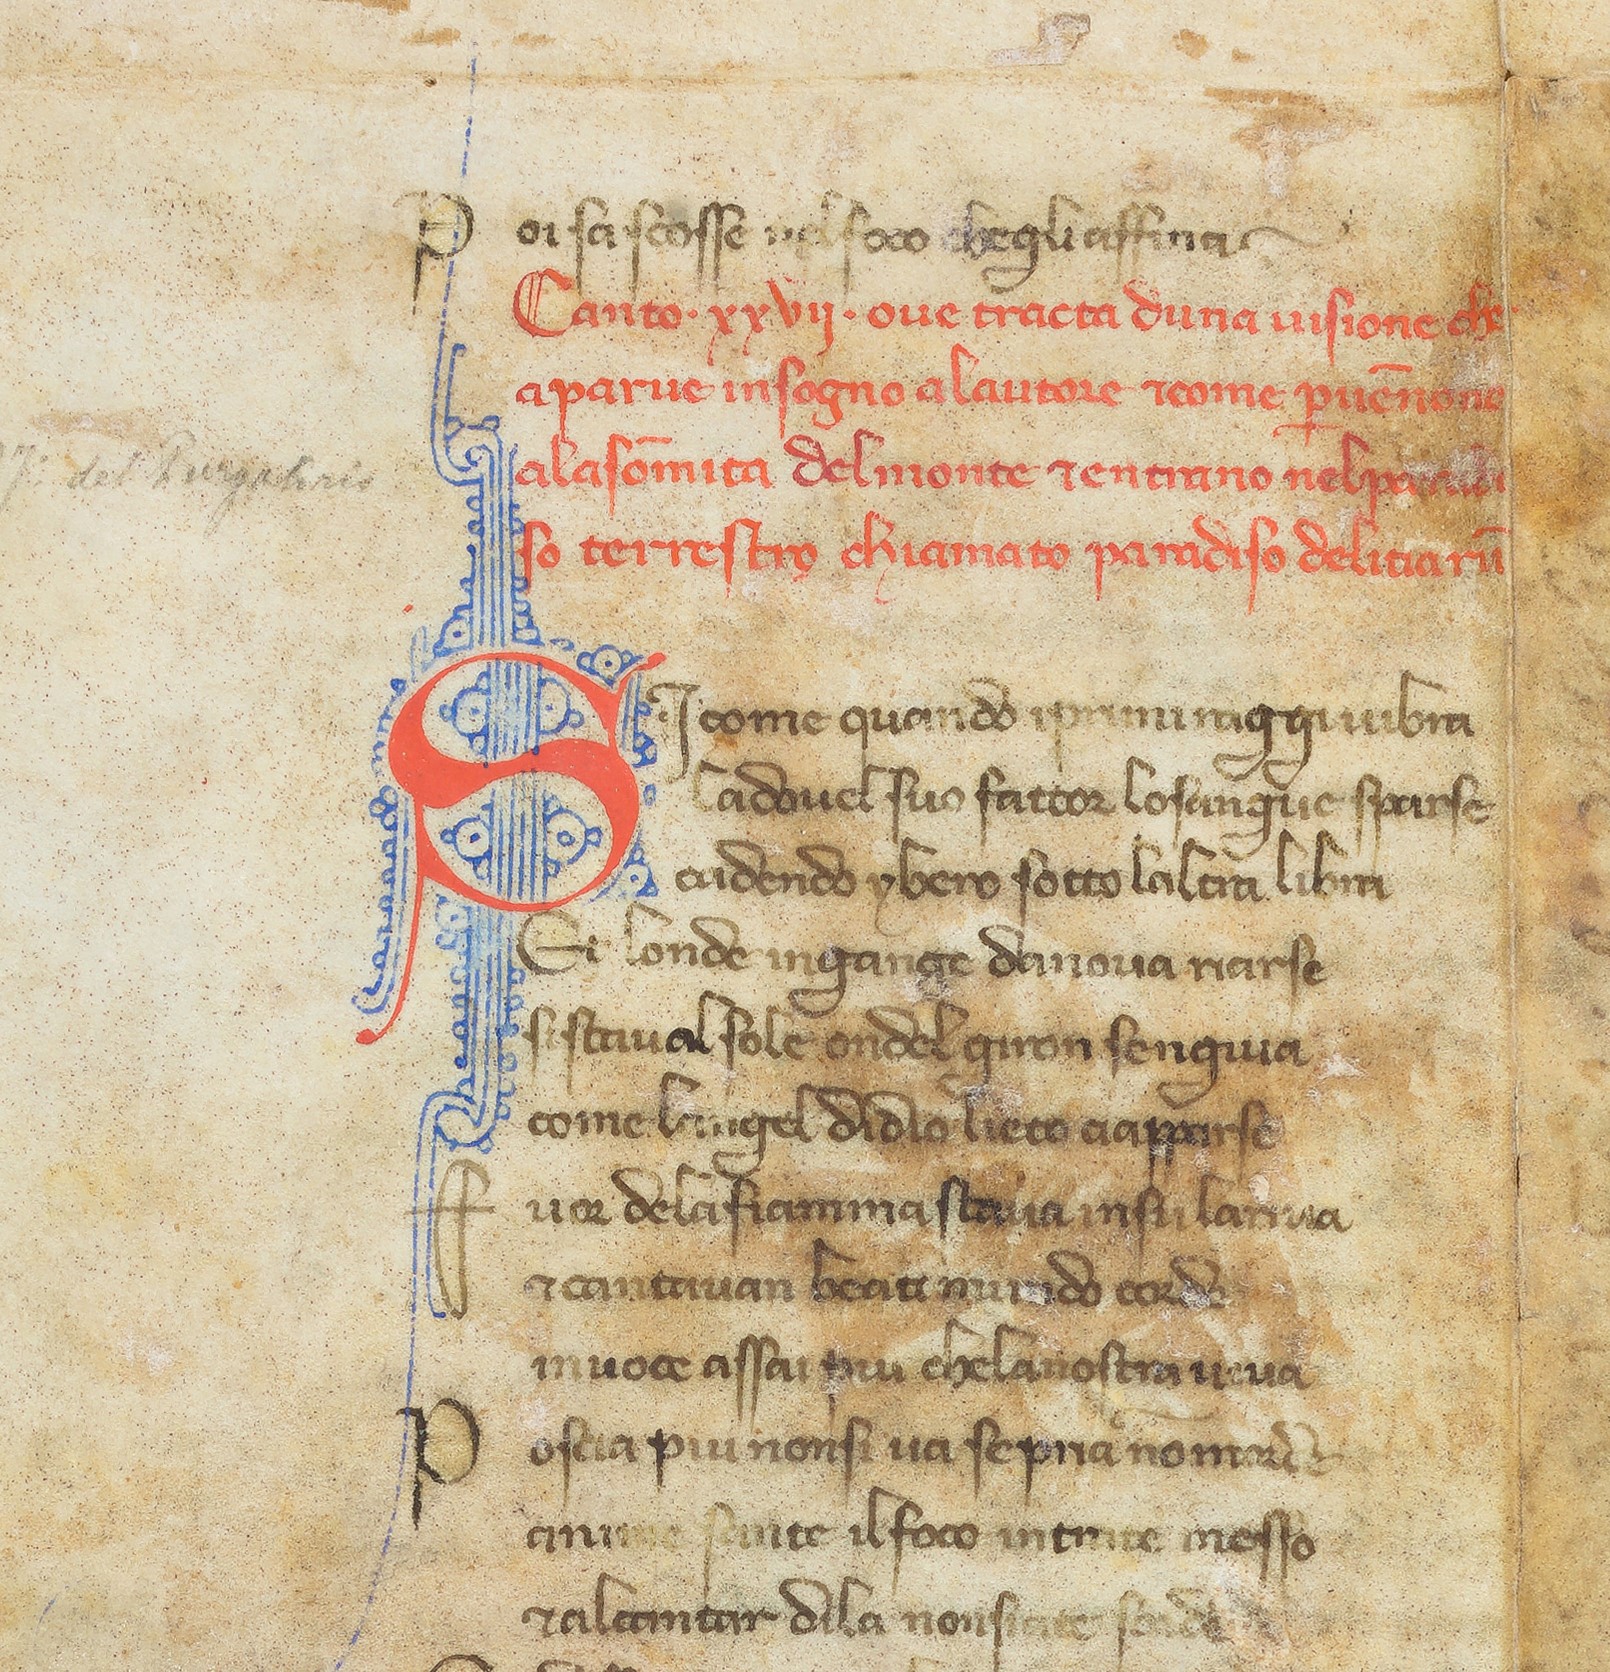 Poi sascosse nel foco chegli affina
Canto · xxvij · oue tracta duna uisione che
aparue insogno alautore ⁊come ꝑuēnono
alasōmita delmonte ⁊entrano nelparadi
so terrestro chiamato paradiso delitiarū
27° del Purgatorio
SIcome quando iprimi raggi uibra
ladouel suo fattor losangue sparse
cadendo ybero sotto lalta libra
Et londe ingange danoua riarse
sistaual sole ondel giron sengiua
come langel didio lieto ciapparse
Fuor delafiamma staua insu lariua
⁊cantauan beati mundo corde
inuoce assai piu chelanostra uiua
Poscia piu nonsi ua sepria nomorde
anime sante ilfoco intrate inesso
⁊alcantar dila nonsiate sorde